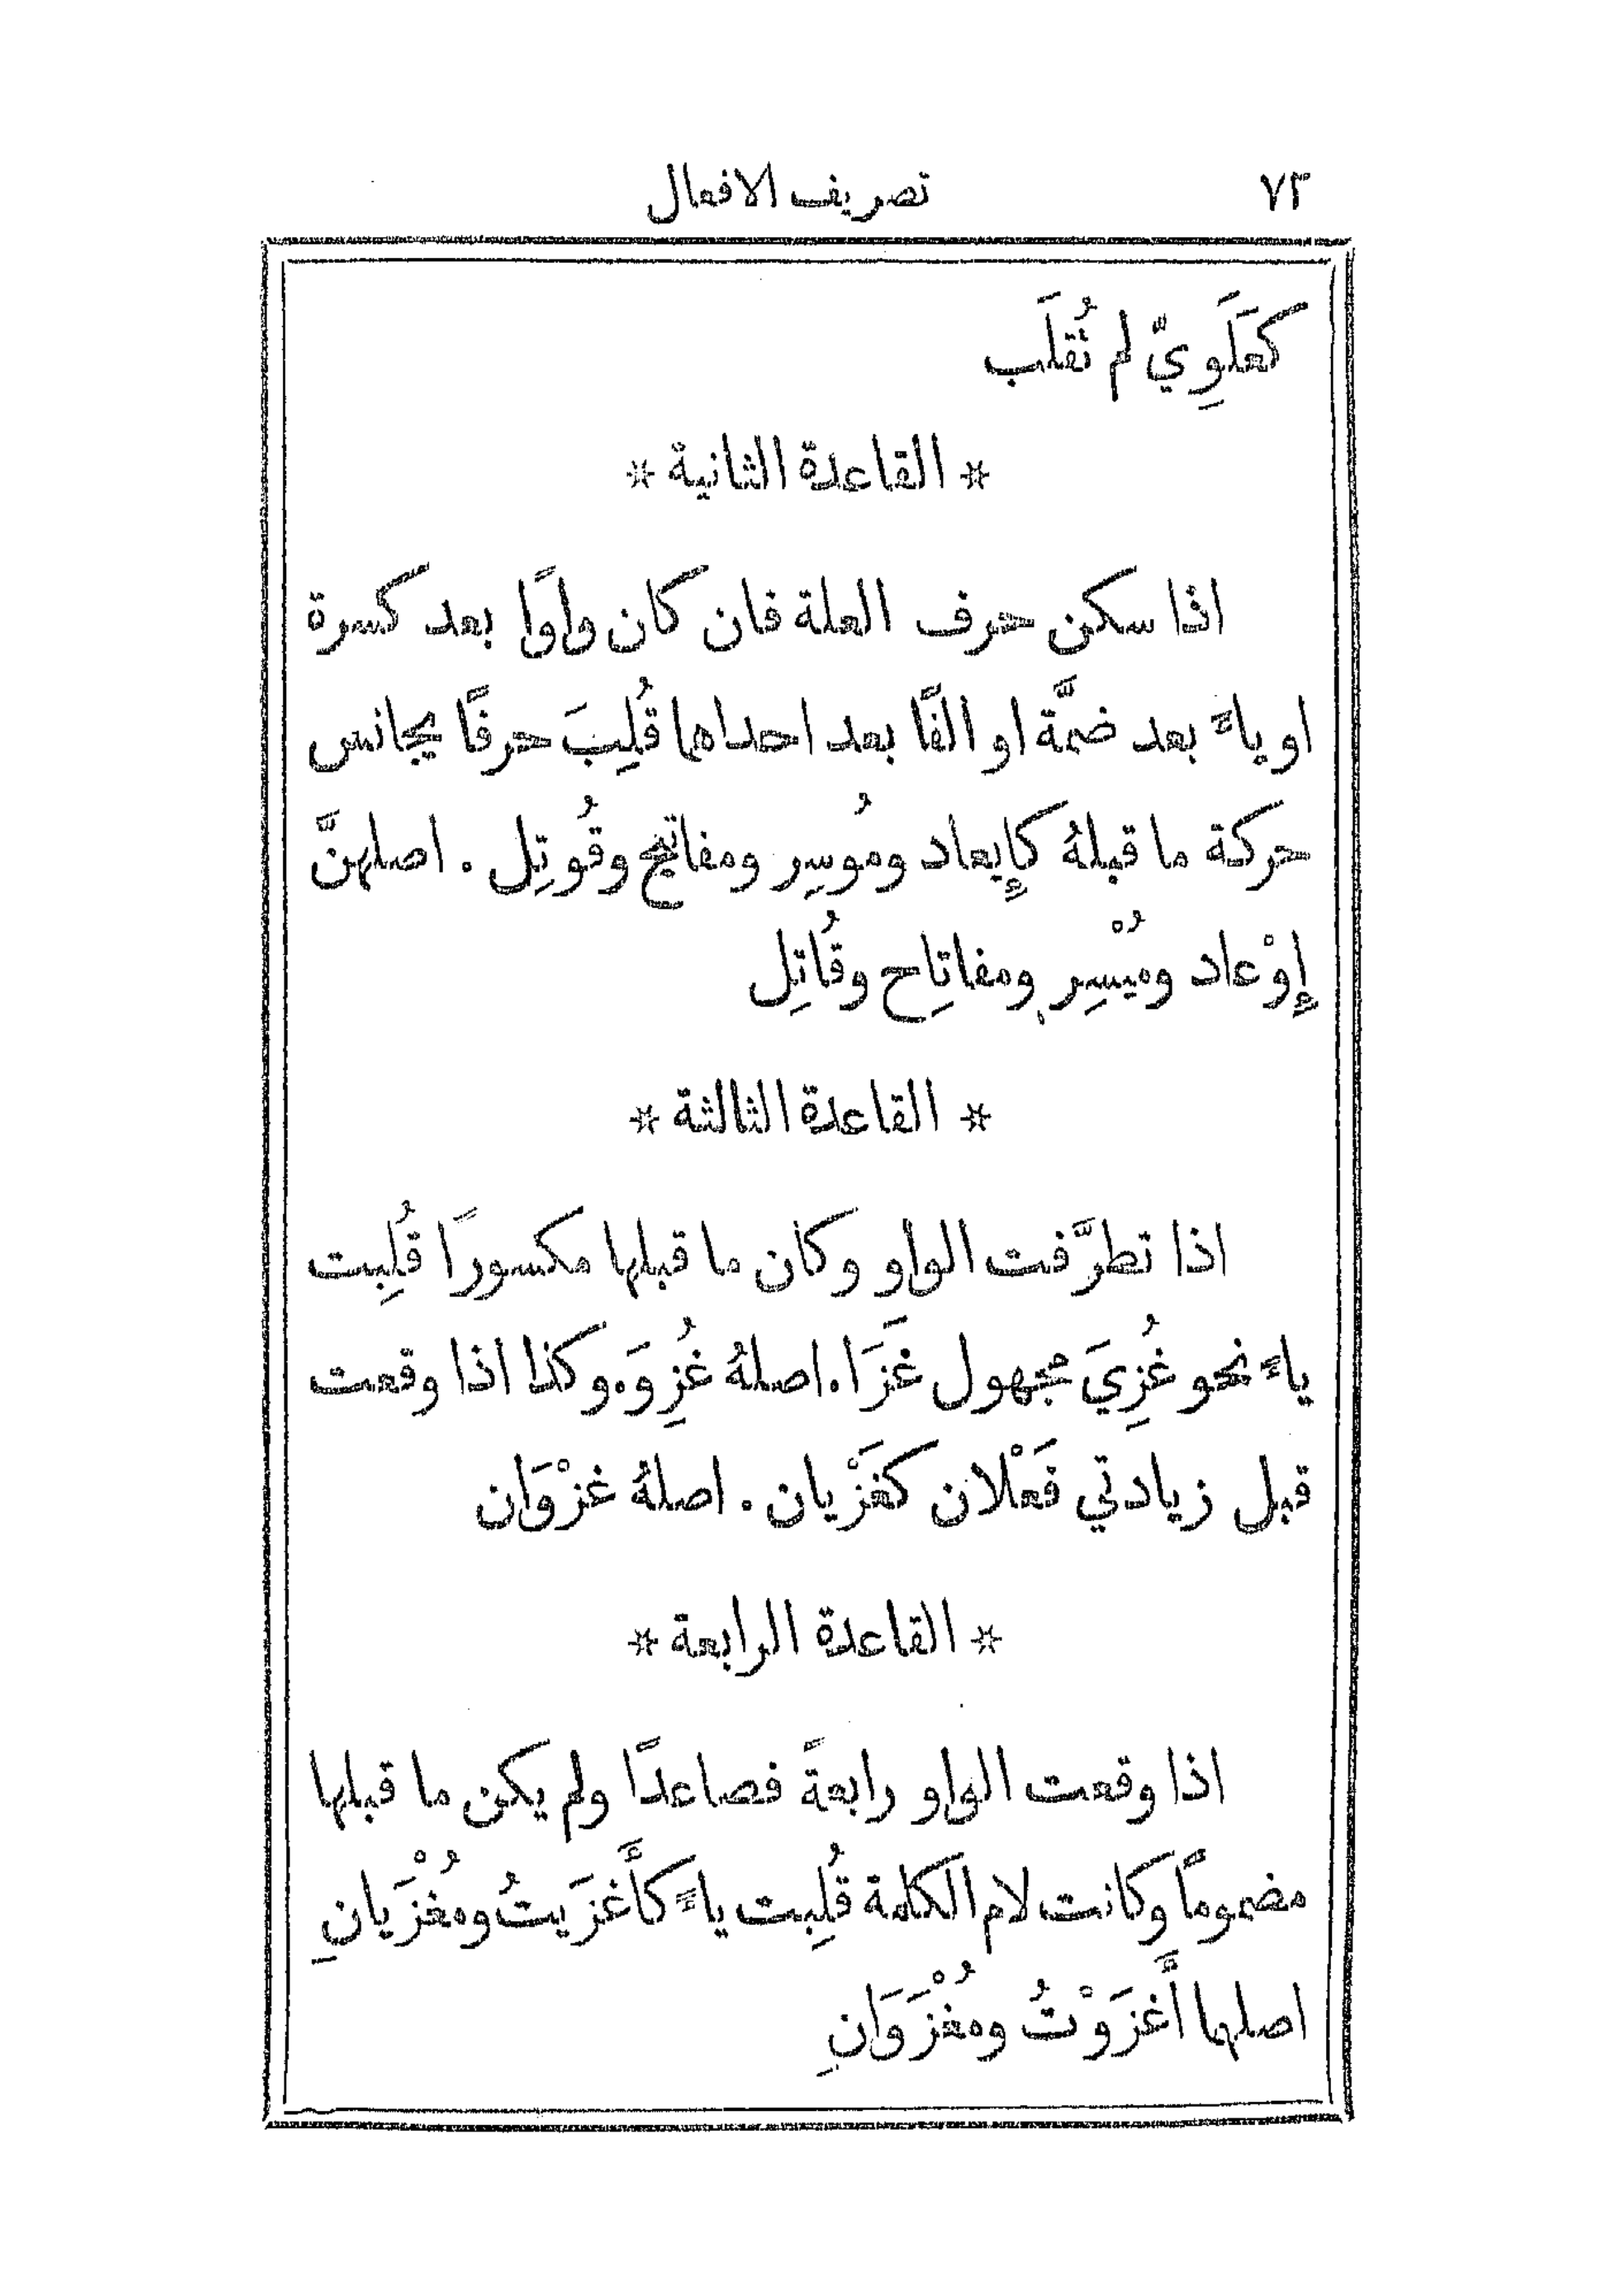 ٧٢ تصريف الافعال
كعَلَوِيّ لم تُقلَب
* القاعدة الثانية *
اذا سكن حرف العلة فان كان واوًا بعد كسرة
او ياءً بعد ضمَّة او الفًا بعد احداهما قُلِبَ حرفًا يجانس
حركة ما قبلهُ كإِيعاد ومُوسِر ومفاتيح وقُوتِل . اصلهنَّ
إِوْعاد ومُيْسِر ومفاتِاح وقُاتِل
* القاعدة الثالثة *
اذا تطرَّفت الواو وكان ما قبلها مكسورًا قُلِبت
ياءً نحو غُزِيَ مجهول غَزَا . اصلهُ غُزِوَ . وكذا اذا وقعت
قبل زيادتي فَعْلان كغَزْيان . اصلهُ غزْوَان
* القاعدة الرابعة *
اذا وقعت الواو رابعةً فصاعدًا ولم يكن ما قبلها
مضمومًا وكانت لام الكلمة قُلِبت ياءً كأَغزَيتُ ومُغْزَيانِ
اصلهما أَغزَوْتُ ومُغْزَوَانِ